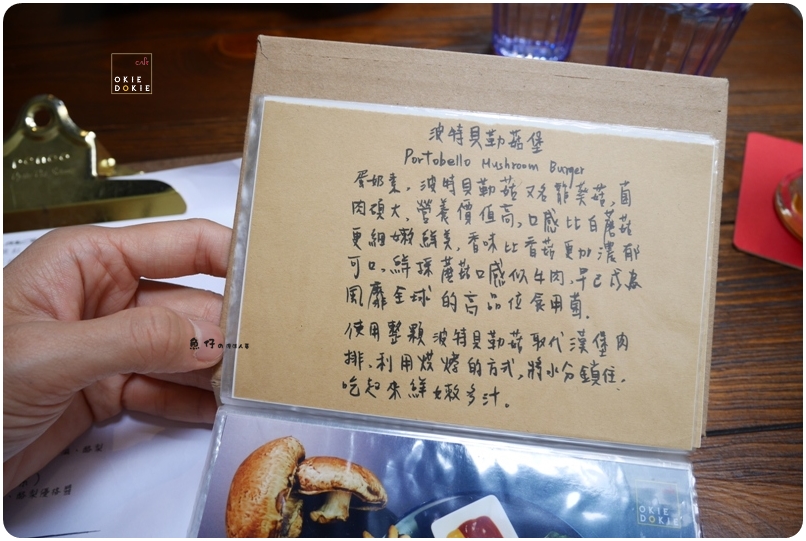 cafe
OKIE
DOKIE
波特貝勒菇堡
Portobello Mushroom Burger
蛋奶素，波特貝勒菇又名龍葵菇，菌
肉碩大，營養價值高，口感比白蘑菇
更細嫩鮮美，香味比香菇更加濃郁
可口，鮮採蘑菇口感似牛肉，早已成為
風靡全球的高品位食用菌．
使用整顆波特貝勒菇取代漢堡肉
排、利用烘烤的方式，將水分鎖住，
吃起來鮮嫩多汁。
魚仔
OKIE
DOKIE